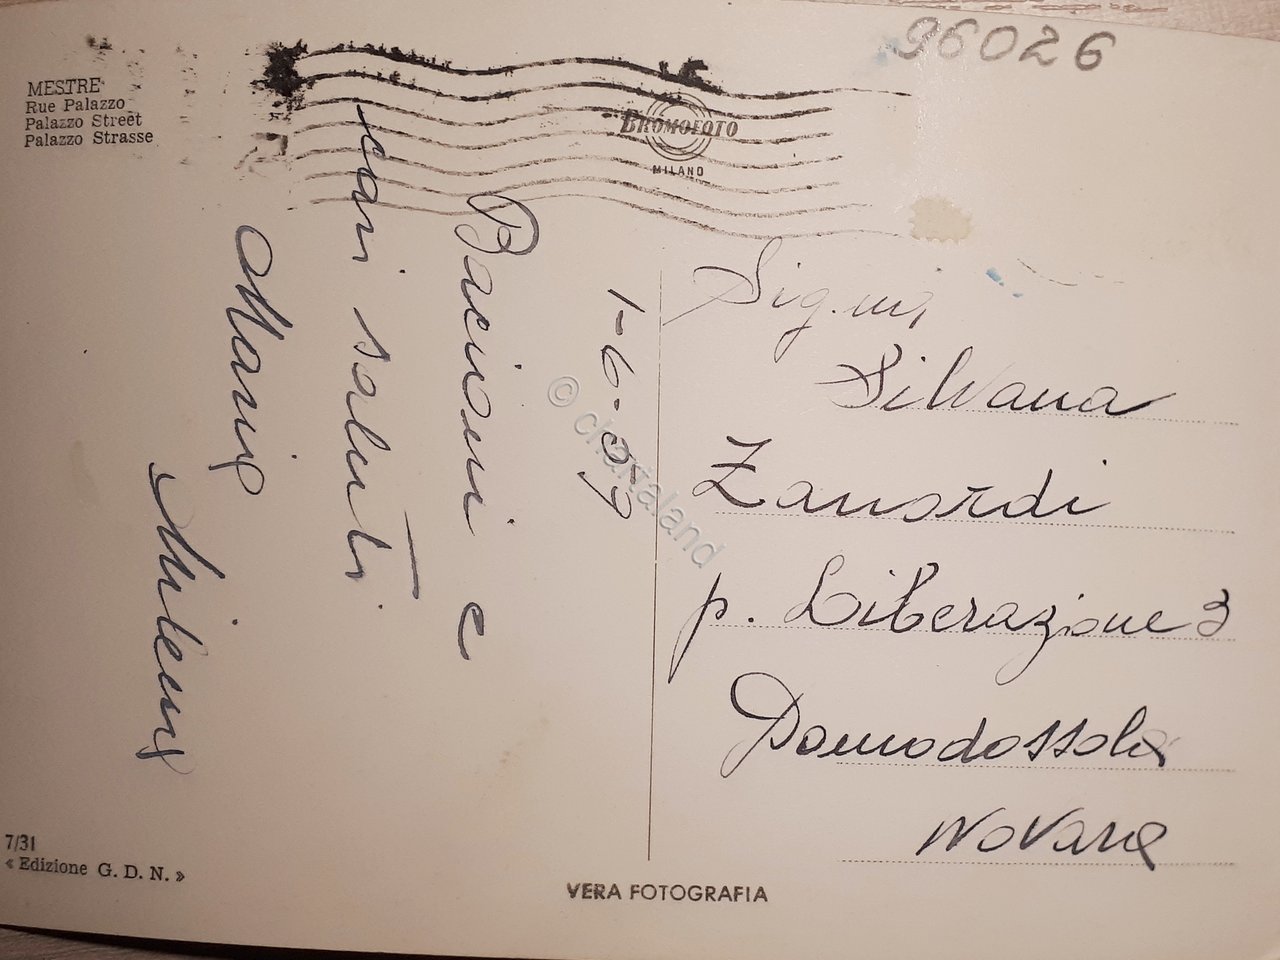 96026
MESTRE
Rue Palazzo
Palazzo Street
Palazzo Strasse
BROMOFOTO
MILANO
1-6-59
Bacioni e
cari saluti
Maria
Milena
Sig.na
Silvana
Zanardi
p. Liberazione 3
Domodossola
Novara
7/31
« Edizione G. D. N. »
VERA FOTOGRAFIA
© chartaland